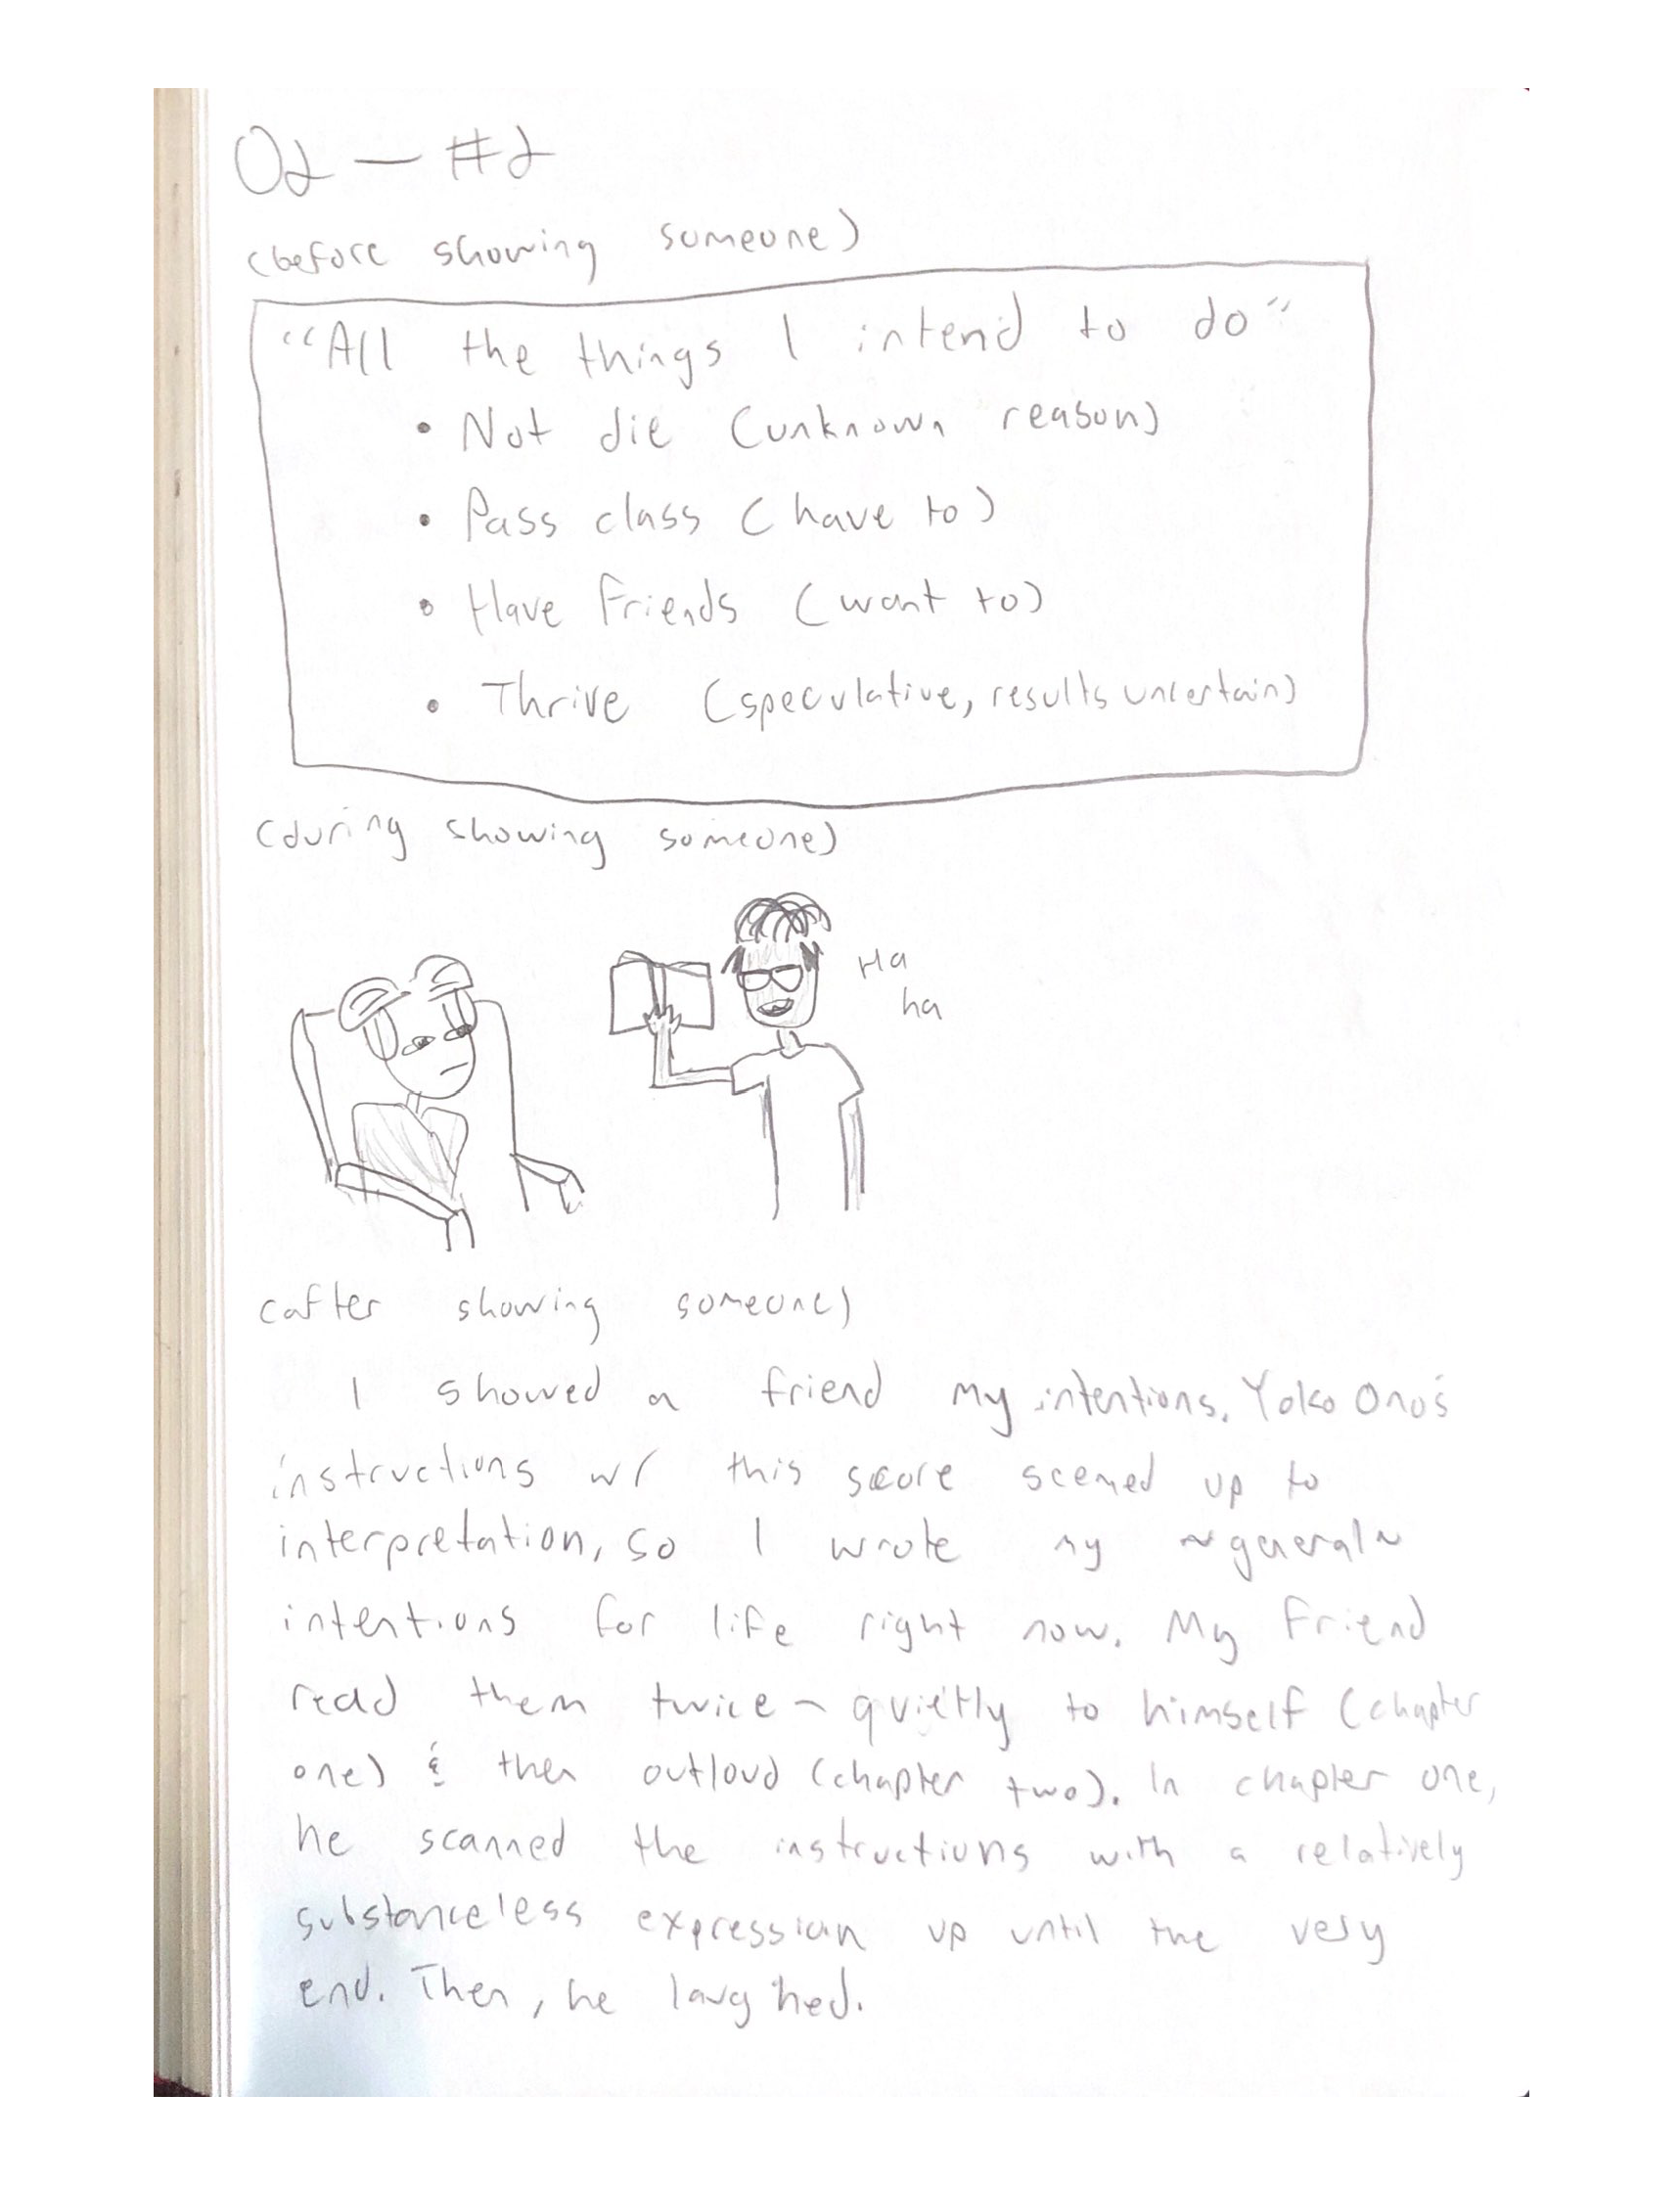 02 — #2
(before showing someone)
"All the things I intend to do"
• Not die (unknown reason)
• Pass class (have to)
• Have friends (want to)
• Thrive (speculative, results uncertain)
(during showing someone)
Ha
ha
(after showing someone)
I showed a friend my intentions. Yoko Ono's
instructions w/ this score seemed up to
interpretation, so I wrote my ~general~
intentions for life right now. My friend
read them twice – quietly to himself (chapter
one) & then outloud (chapter two). In chapter one,
he scanned the instructions with a relatively
substanceless expression up until the very
end. Then, he laughed.